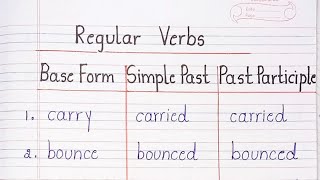 Regular Verbs
Base Form Simple Past Past Participle
1. carry carried carried
2. bounce bounced bounced